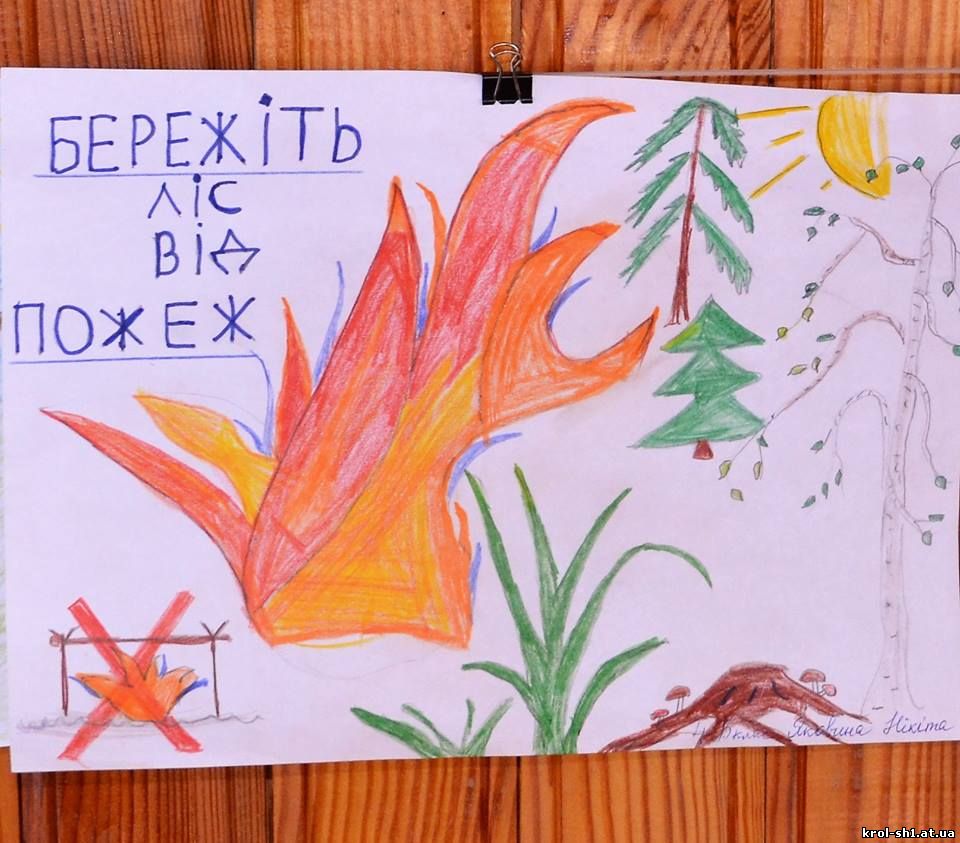 БЕРЕЖІТЬ
ЛІС
ВІД
ПОЖЕЖ
Нікіта
krol-sh1.at.ua